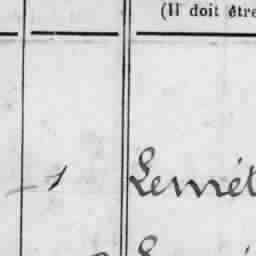 (Il doit être
1 Lemét